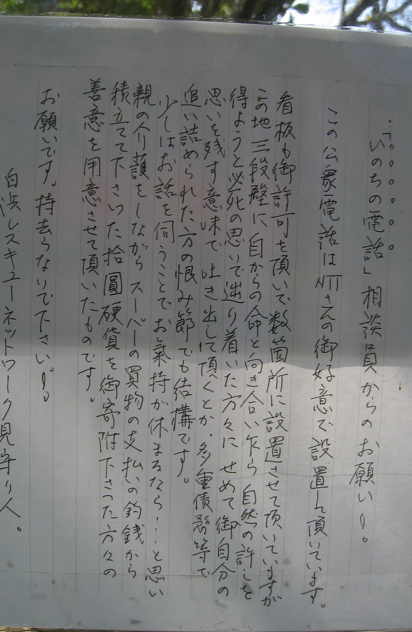 「いのちの電話」相談員からのお願い!。
この公衆電話はNTTさんの御好意で設置して頂いています。
看板も御許可を頂いて数箇所に設置させて頂いていますが
この地三段壁に、自からの命と向き合い乍ら自然の許しを
得ようと必死の思いで辿り着いた方々に せめて御自分の
思いを残す意味で、吐き出して頂くとか、多重債務等で
追い詰められた方の恨み節でも結構です。
少しはお話を伺うことでお氣持が休まるなら…と思い
親の介護をしながらスーパーの買物の支払いの釣銭から
積立てて下さった拾圓硬貨を御寄附下さった方々の
善意を用意させて頂いたものです。
お願いです。持去らないで下さい!。
白浜レスキューネットワーク見守り人。